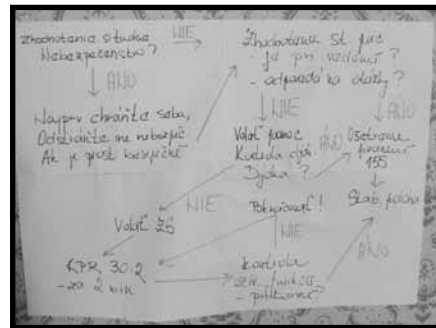 Zhodnotenie situácie NIE
Nebezpečenstvo?
ÁNO
Najprv chráňte seba,
Odstráňte nebezpeč
Ak je prost bezpečné
Zhodnotenie st. pac
- je pri vedomí?
- odpovedá na otázky?
NIE
ÁNO
Volať pomoc
Kontrola dých.
Dýcha?
ÁNO
Ošetrenie
155
Stab. poloha
Volať ZS
NIE
Pokračovať!
NIE
ÁNO
KPR 30:2
- za 2 min
Kontrola
živ. funkcií
- prítomné?